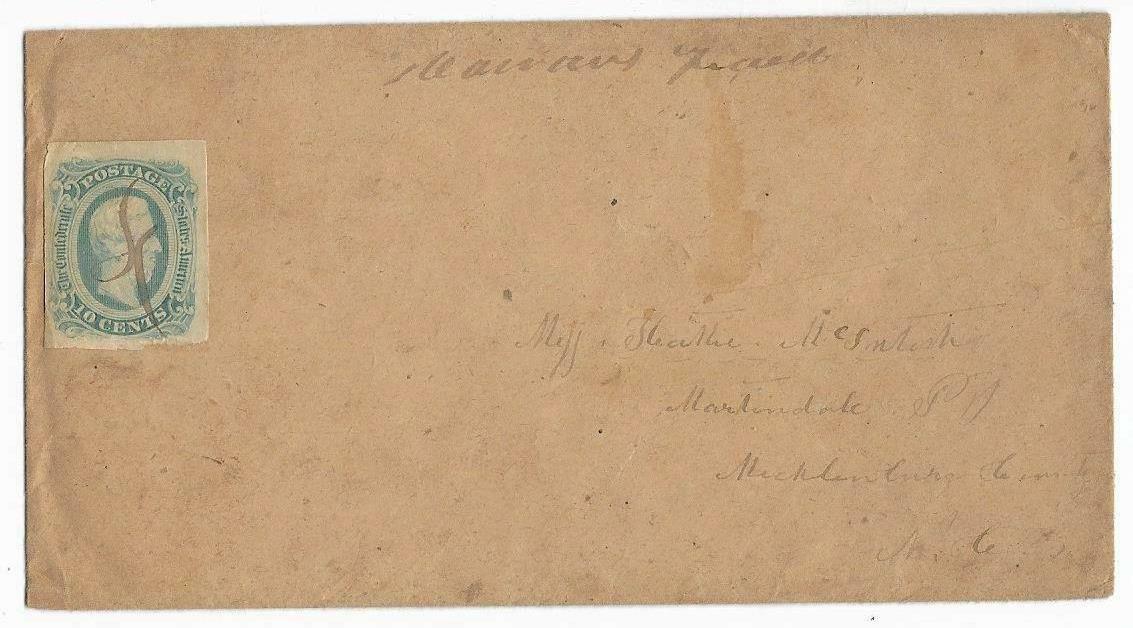 POSTAGE
The Confederate States of America
10 CENTS
Miss McIntosh
Martindale P O
Mecklenburg County
N. C